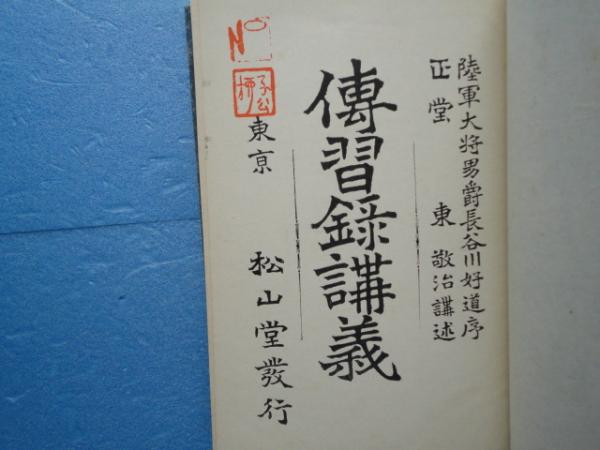 陸軍大將男爵長谷川好道序
正堂 東 敬治講述
傳習錄講義
東京 松山堂發行